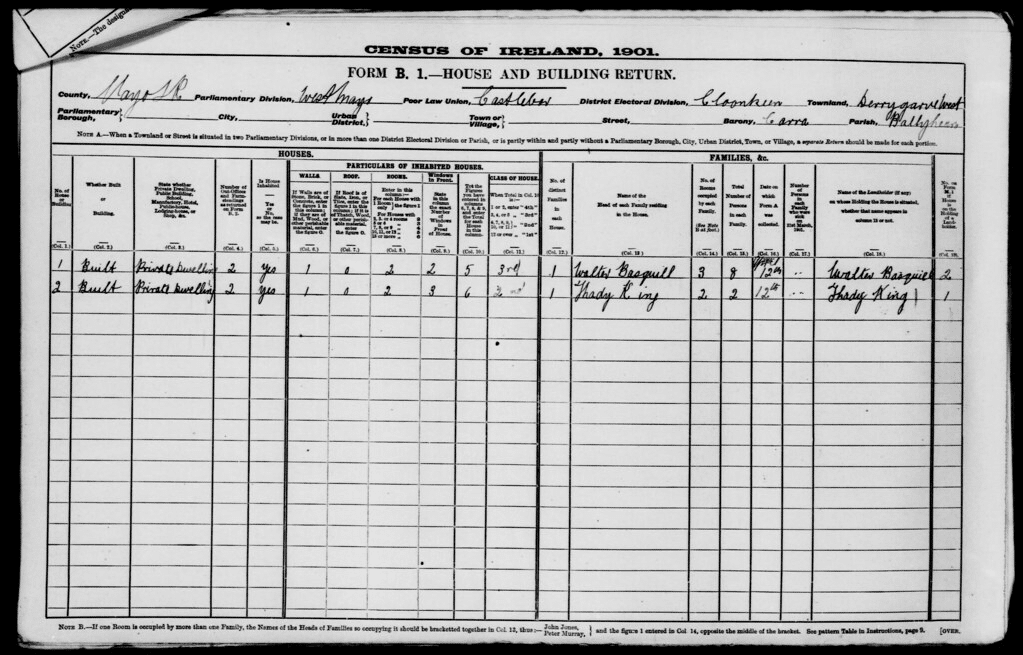 NOTE.—The designa
CENSUS OF IRELAND, 1901.
FORM B. 1.—HOUSE AND BUILDING RETURN.
County, Mayo Parliamentary Division, West Mayo Poor Law Union, Castlebar District Electoral Division, Cloonkeen Townland, Derrygarve West
Parliamentary Borough, City, Urban District, Town or Village, Street, Barony, Carra Parish, Ballyhean
NOTE A.—When a Townland or Street is situated in two Parliamentary Divisions, or in more than one District Electoral Division or Parish, or is partly within and partly without a Parliamentary Borough, City, Urban District, Town, or Village, a separate Return should be made for each portion.
HOUSES. FAMILIES, &c.
PARTICULARS OF INHABITED HOUSES.
WALLS. ROOF. ROOMS. Windows in Front. CLASS OF HOUSE.
No. of House or Building
Whether Built or Building.
State whether Private Dwelling, Public Building, School, Manufactory, Hotel, Public-house, Lodging-house, or Shop, &c.
Number of Out-Offices and Farm-steadings as returned on Form B. 2.
Is House Inhabited Yes or No, as the case may be.
If Walls are of Stone, Brick, or Concrete, enter the figure 1 in this column; if they are of Mud, Wood, or other perishable material, enter the figure 0.
If Roof is of Slate, Iron, or Tiles, enter the figure 1 in this column; if of Thatch, Wood, or other perishable material, enter the figure 0.
Enter in this column:—
For Houses with
State in this column the exact Number of Windows in Front of House.
No. of distinct Families in each House.
Name of the Head of each Family residing in the House.
No. of Rooms occupied by each Family.
Total Number of Persons in each Family.
Date on which Form A was collected.
Number of Persons in each Family who were sick on 31st March, 1901.
Name of the Landholder (if any) on whose Holding the House is situated, whether that name appears in column 13 or not.
No. on Form M. 1 if House is on the Holding of a Landholder.
(Col. 1.) (Col. 2.) (Col. 3.) (Col. 4.) (Col. 5.) (Col. 6.) (Col. 7.) (Col. 8.) (Col. 9.) (Col. 10.) (Col. 11.) (Col. 12.) (Col. 13.) (Col. 14.) (Col. 15.) (Col. 16.) (Col. 17.) (Col. 18.) (Col. 19.)
1 Built Private Dwelling 2 Yes 1 0 2 2 5 3rd 1 Walter Basquill 3 8 April 12th -- Walter Basquill 2
2 Built Private Dwelling 2 Yes 1 0 2 3 6 2nd 1 Thady King 2 2 12th -- Thady King 1
NOTE B.—If one Room is occupied by more than one Family, the Names of the Heads of Families so occupying it should be bracketted together in Col. 13, thus:— John Jones, Peter Murray, and the figure 1 entered in Col. 14, opposite the middle of the bracket. See pattern Table in Instructions, page 9. [OVER.